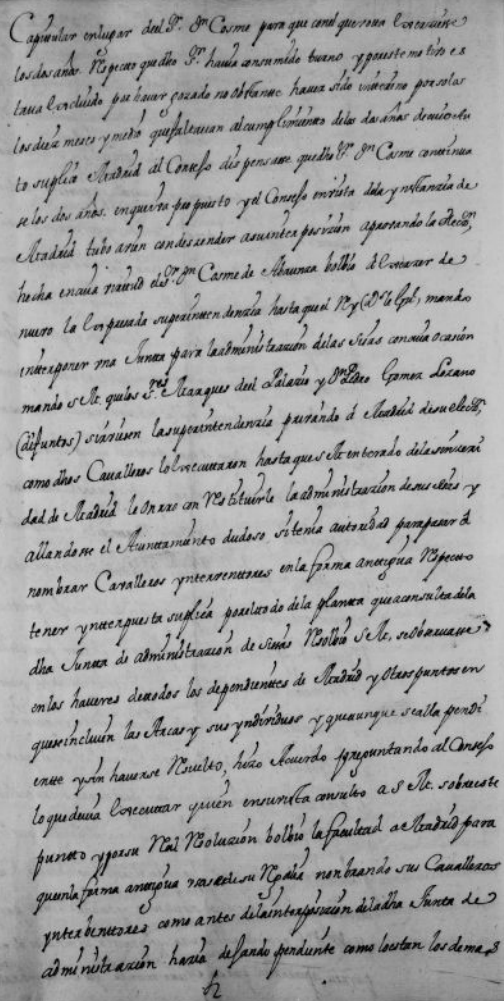 Capitular en lugar del Sr. Dn Cosme para que con el que rova executase
los dos años. Respecto que dho Sr. havia consumido turno y por este motivo es
tava excluido por haver gozado no obstante haver sido interino por solas
los diez meses y medio que faltavan al cumplimiento de los dos años de
to suplico Madrid al Consejo dispensase que dho Sr. Dn Cosme continua
se los dos años. en que iva propuesto y el Consejo en vista de la ynstanzia de
Madrid tubo a vien condescender a su interposizion aprovando la elecon
hecha en cuia virtud el Sr. Dn Cosme de Abaunza bolbio a exerzer de
nuevo la expresada superintendenzia hasta que el Rey (Ds le Gde) mando
interponer una Junta para la administrazion de las sisas con cuia ocasion
mando S M. que los Sres Marques del Palazio y Dn Pedro Gomez Lozano
(difuntos) sirviesen la superintendenzia privando a Madrid de su elecon
como dhos Cavalleros lo executaron hasta que S M enterado de la sinceri
dad de Madrid le onrro con Restituirle la administrazion de sus sisas y
allandose el Ayuntamiento dudoso si tenia autoridad para pasar a
nombrar Cavalleros ynterventores en la forma antigua Respecto
tener ynterpuesta suplica por el todo de la planta que a consulta de la
dha Junta de administrazion de sisas Resolbio S M. se observasse
en los haveres de todos los dependientes de Madrid y otros puntos en
que se incluien las Arcas y sus yndividuos y que aunque se alla pendi
ente y sin haverse Resuelto, hizo Acuerdo preguntando al Consejo
lo que devia executar quien en su vista consulto a S M. sobre este
punto y por su Real Resoluzion bolbio la facultad a Madrid para
que en la forma antigua usase de su Regalia nonbrando sus Cavalleros
ynterbentores como antes de la interposizion de la dha Junta de
administrazion hazia dejando pendiente como lo estan los demas